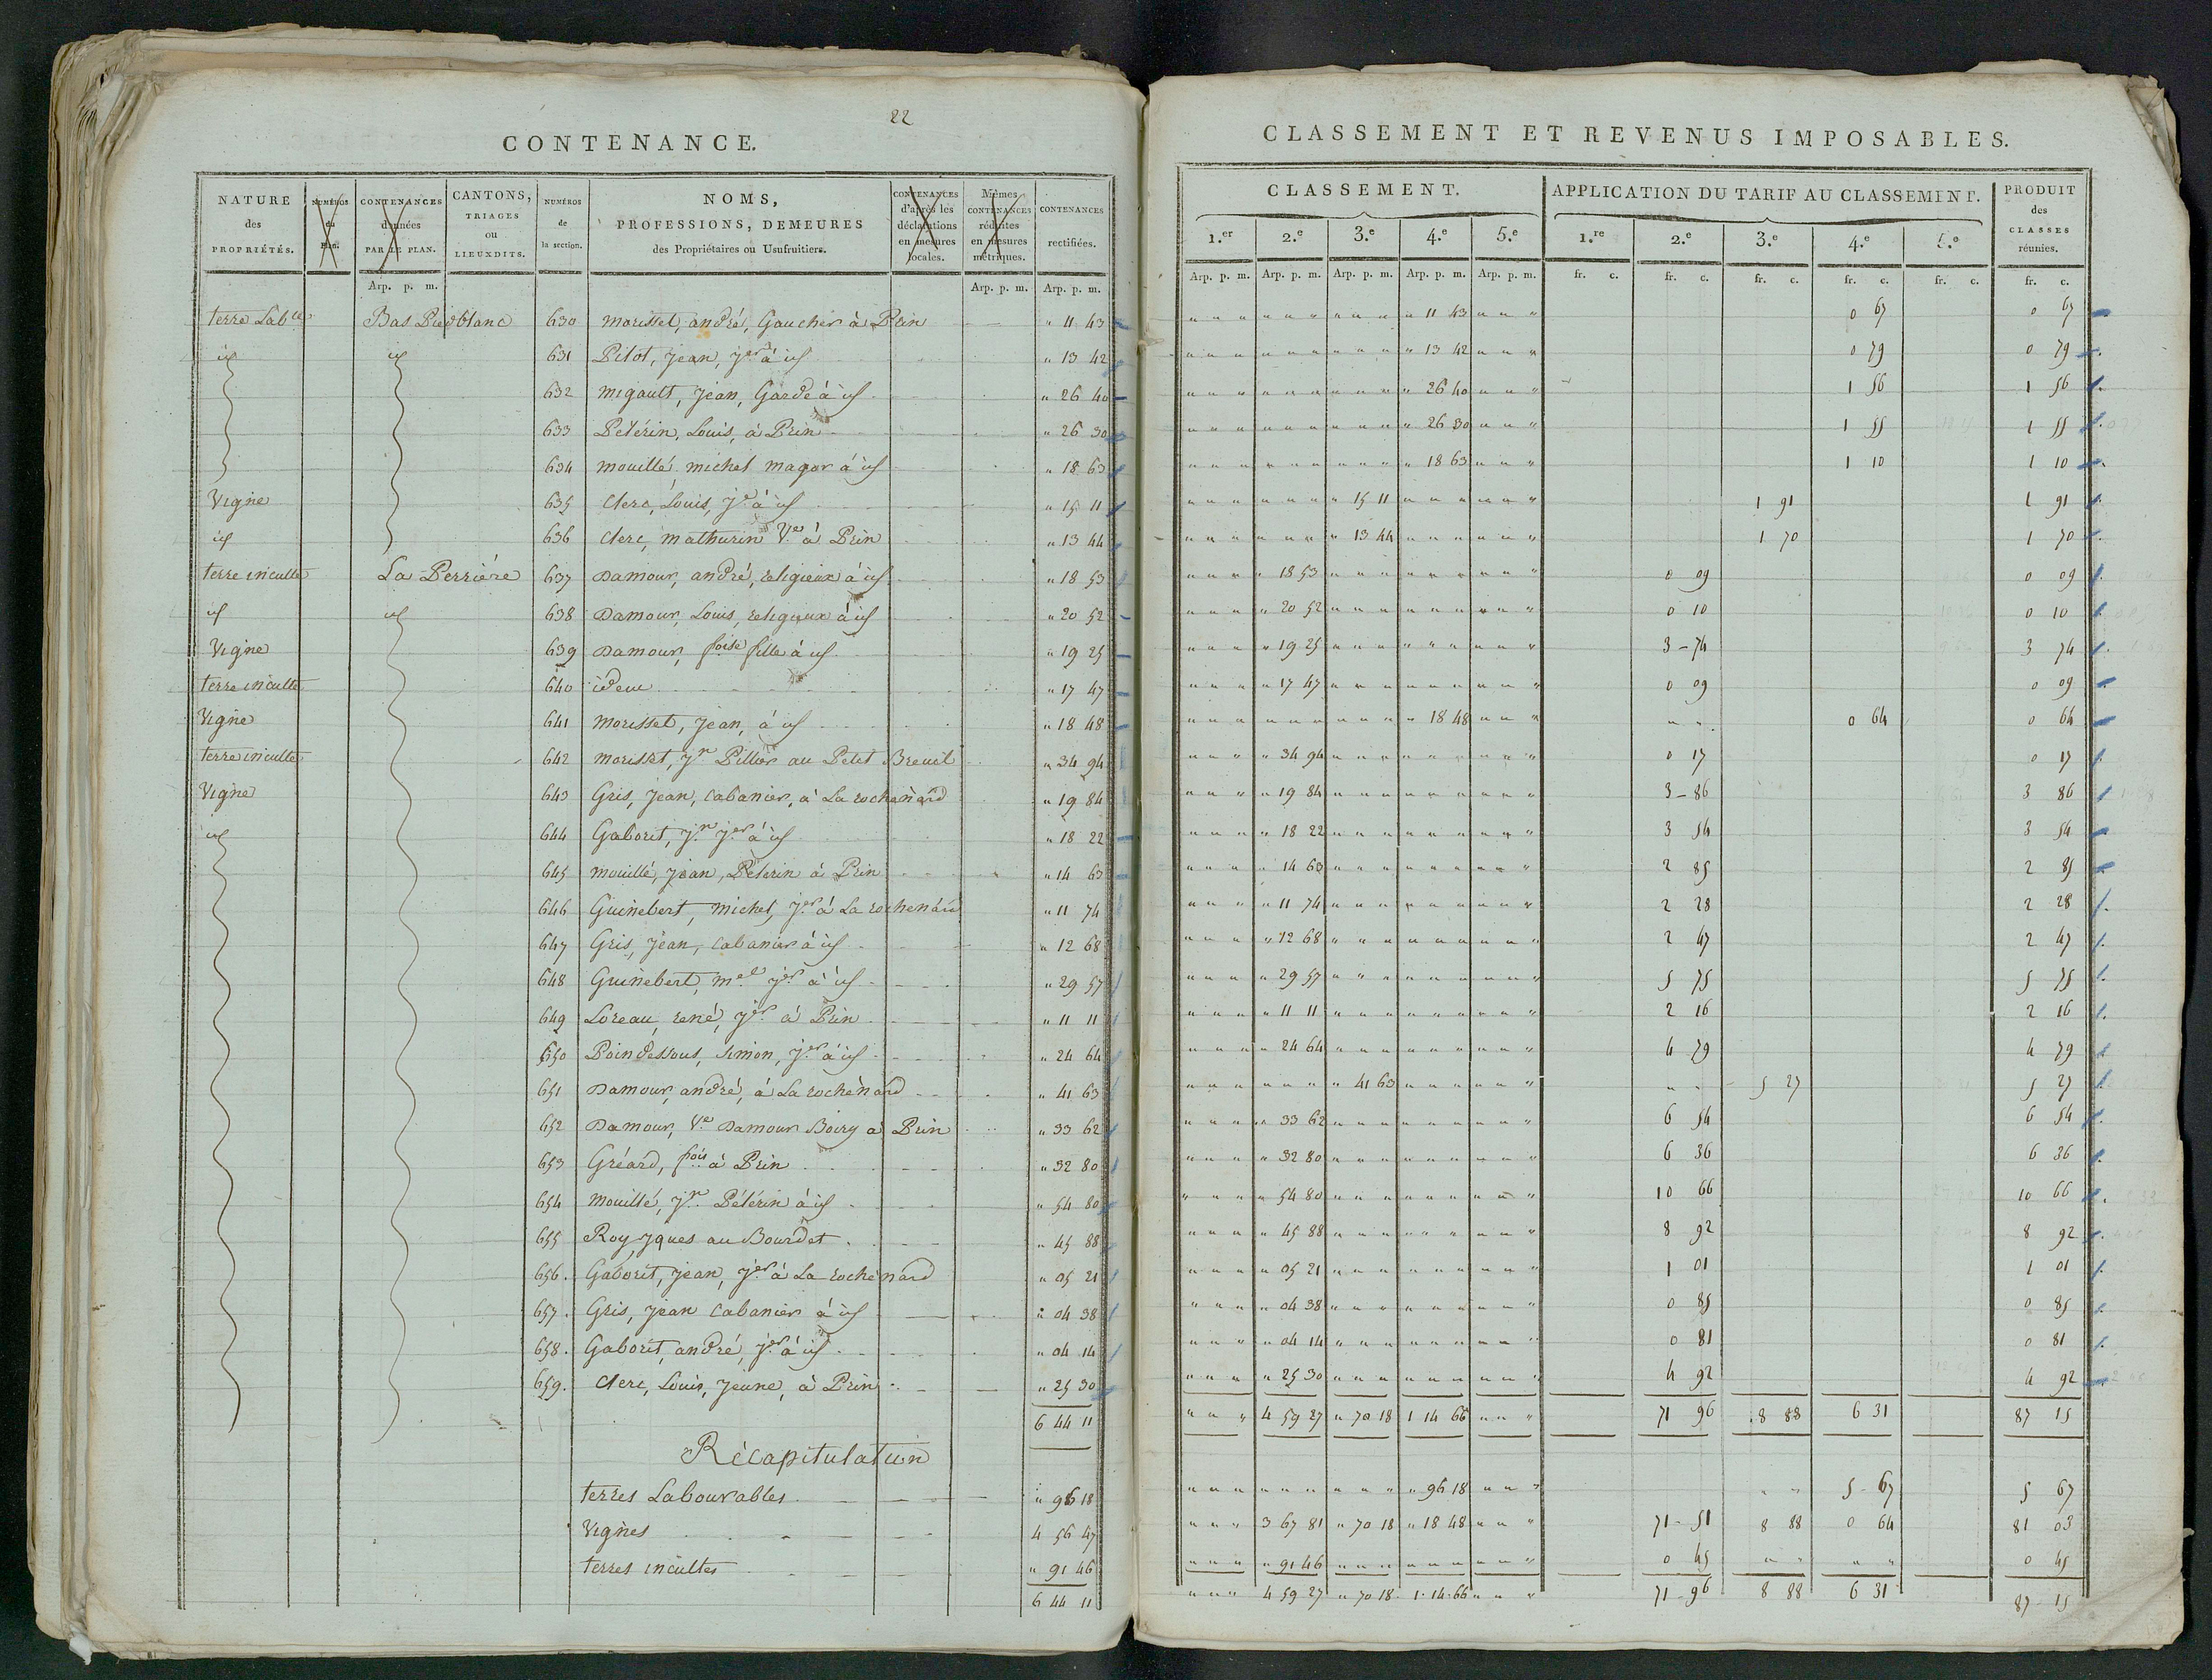 22
CONTENANCE.
NATURE des PROPRIÉTÉS. NUMÉROS du Plan. CONTENANCES données PAR LE PLAN. CANTONS, TRIAGES ou LIEUXDITS. NUMÉROS de la section. NOMS, PROFESSIONS, DEMEURES des Propriétaires ou Usufruitiers. CONTENANCES d'après les déclarations en mesures locales. Mêmes CONTENANCES réduites en mesures métriques. CONTENANCES rectifiées.
Arp. p. m. Arp. p. m. Arp. p. m.
terre Lab.le Bas Piedblanc 630 morisset, andré, Gaucher à Prin " 11 43
id id 631 Pilot, jean, j.er à id " 13 42
632 migault, jean, Garde à id " 26 40
633 Pelérin, Louis, à Prin " 26 30
634 mouillé, michel magor à id " 18 63
Vigne 635 Clerc, Louis, j.e à id " 15 11
id 636 Clerc, mathurin V.e à Prin " 13 44
terre inculte La Perrière 637 Damour, andré, religieux à id " 18 53
id id 638 Damour, Louis, religieux à id " 20 52
Vigne 639 Damour, f.oise fille à id " 19 25
terre inculte 640 idem " 17 47
Vigne 641 morisset, jean, à id " 18 48
terre inculte 642 morisset, j.n Pillier au Petit Breuil " 34 94
Vigne 643 Gris, jean, cabanier, à La rochenard " 19 84
id 644 Gaborit, j.n j.er à id " 18 22
645 mouillé, jean, Pélerin à Prin " 14 63
646 Guinebert, michel, j.er à La rochenard " 11 74
647 Gris, jean, cabanier à id " 12 68
648 Guinebert, m.el j.er à id " 29 57
649 Loreau, rené, j.er à Prin " 11 11
650 Poindessous, simon, j.er à id " 24 64
651 Damour, andré, à La rochenard " 41 63
652 Damour, V.e Damour Boiry à Prin " 33 62
653 Gréard, f.ois à Prin " 32 80
654 Mouillé, j.n Pélérin à id " 54 80
655 Roy, jques au Bourdet " 45 88
656. Gaborit, jean, j.er à La rochenard " 05 21
657. Gris, jean cabanier à id " 04 38
658. Gaborit, andré, j.er à id " 04 14
659. Clerc, Louis, jeune, à Prin " 25 30
6 44 11
Récapitulation
terres Labourables " 96 18
Vignes 4 56 47
terres incultes " 91 46
6 44 11
CLASSEMENT ET REVENUS IMPOSABLES.
CLASSEMENT. APPLICATION DU TARIF AU CLASSEMENT. PRODUIT des CLASSES réunies.
1.er 2.e 3.e 4.e 5.e 1.re 2.e 3.e 4.e 5.e
Arp. p. m. Arp. p. m. Arp. p. m. Arp. p. m. Arp. p. m. fr. c. fr. c. fr. c. fr. c. fr. c. fr. c.
" 11 43 0 67 0 67
" 13 42 0 79 0 79
" 26 40 1 56 1 56
" 26 30 1 55 1 55
" 18 63 1 10 1 10
" 15 11 1 91 1 91
" 13 44 1 70 1 70
" 18 53 0 09 0 09
" 20 52 0 10 0 10
" 19 25 3 - 74 3 74
" 17 47 0 09 0 09
" 18 48 " " 0 64 0 64
" 34 94 0 17 0 17
" 19 84 3 - 86 3 86
" 18 22 3 54 3 54
" 14 63 2 85 2 85
" 11 74 2 28 2 28
" 12 68 2 47 2 47
" 29 57 5 75 5 75
" 11 11 2 16 2 16
" 24 64 4 79 4 79
" 41 63 " " 5 27 5 27
" 33 62 6 54 6 54
" 32 80 6 36 6 36
" 54 80 10 66 10 66
" 45 88 8 92 8 92
" 05 21 1 01 1 01
" 04 38 0 85 0 85
" 04 14 0 81 0 81
" 25 30 4 92 4 92
" " " 4 59 27 " 70 18 1 14 66 " " " 71 96 8 88 6 31 87 15
" 96 18 " " " " " 5 - 67 5 67
" " " 3 67 81 " 70 18 " 18 48 " " " 71 - 51 8 88 0 64 81 03
" " " " 91 46 " " " " " " " " " 0 45 " " " " 0 45
" " " 4 59 27 " 70 18 1 - 14 - 66 " " " 71 - 96 8 88 6 31 87 - 15